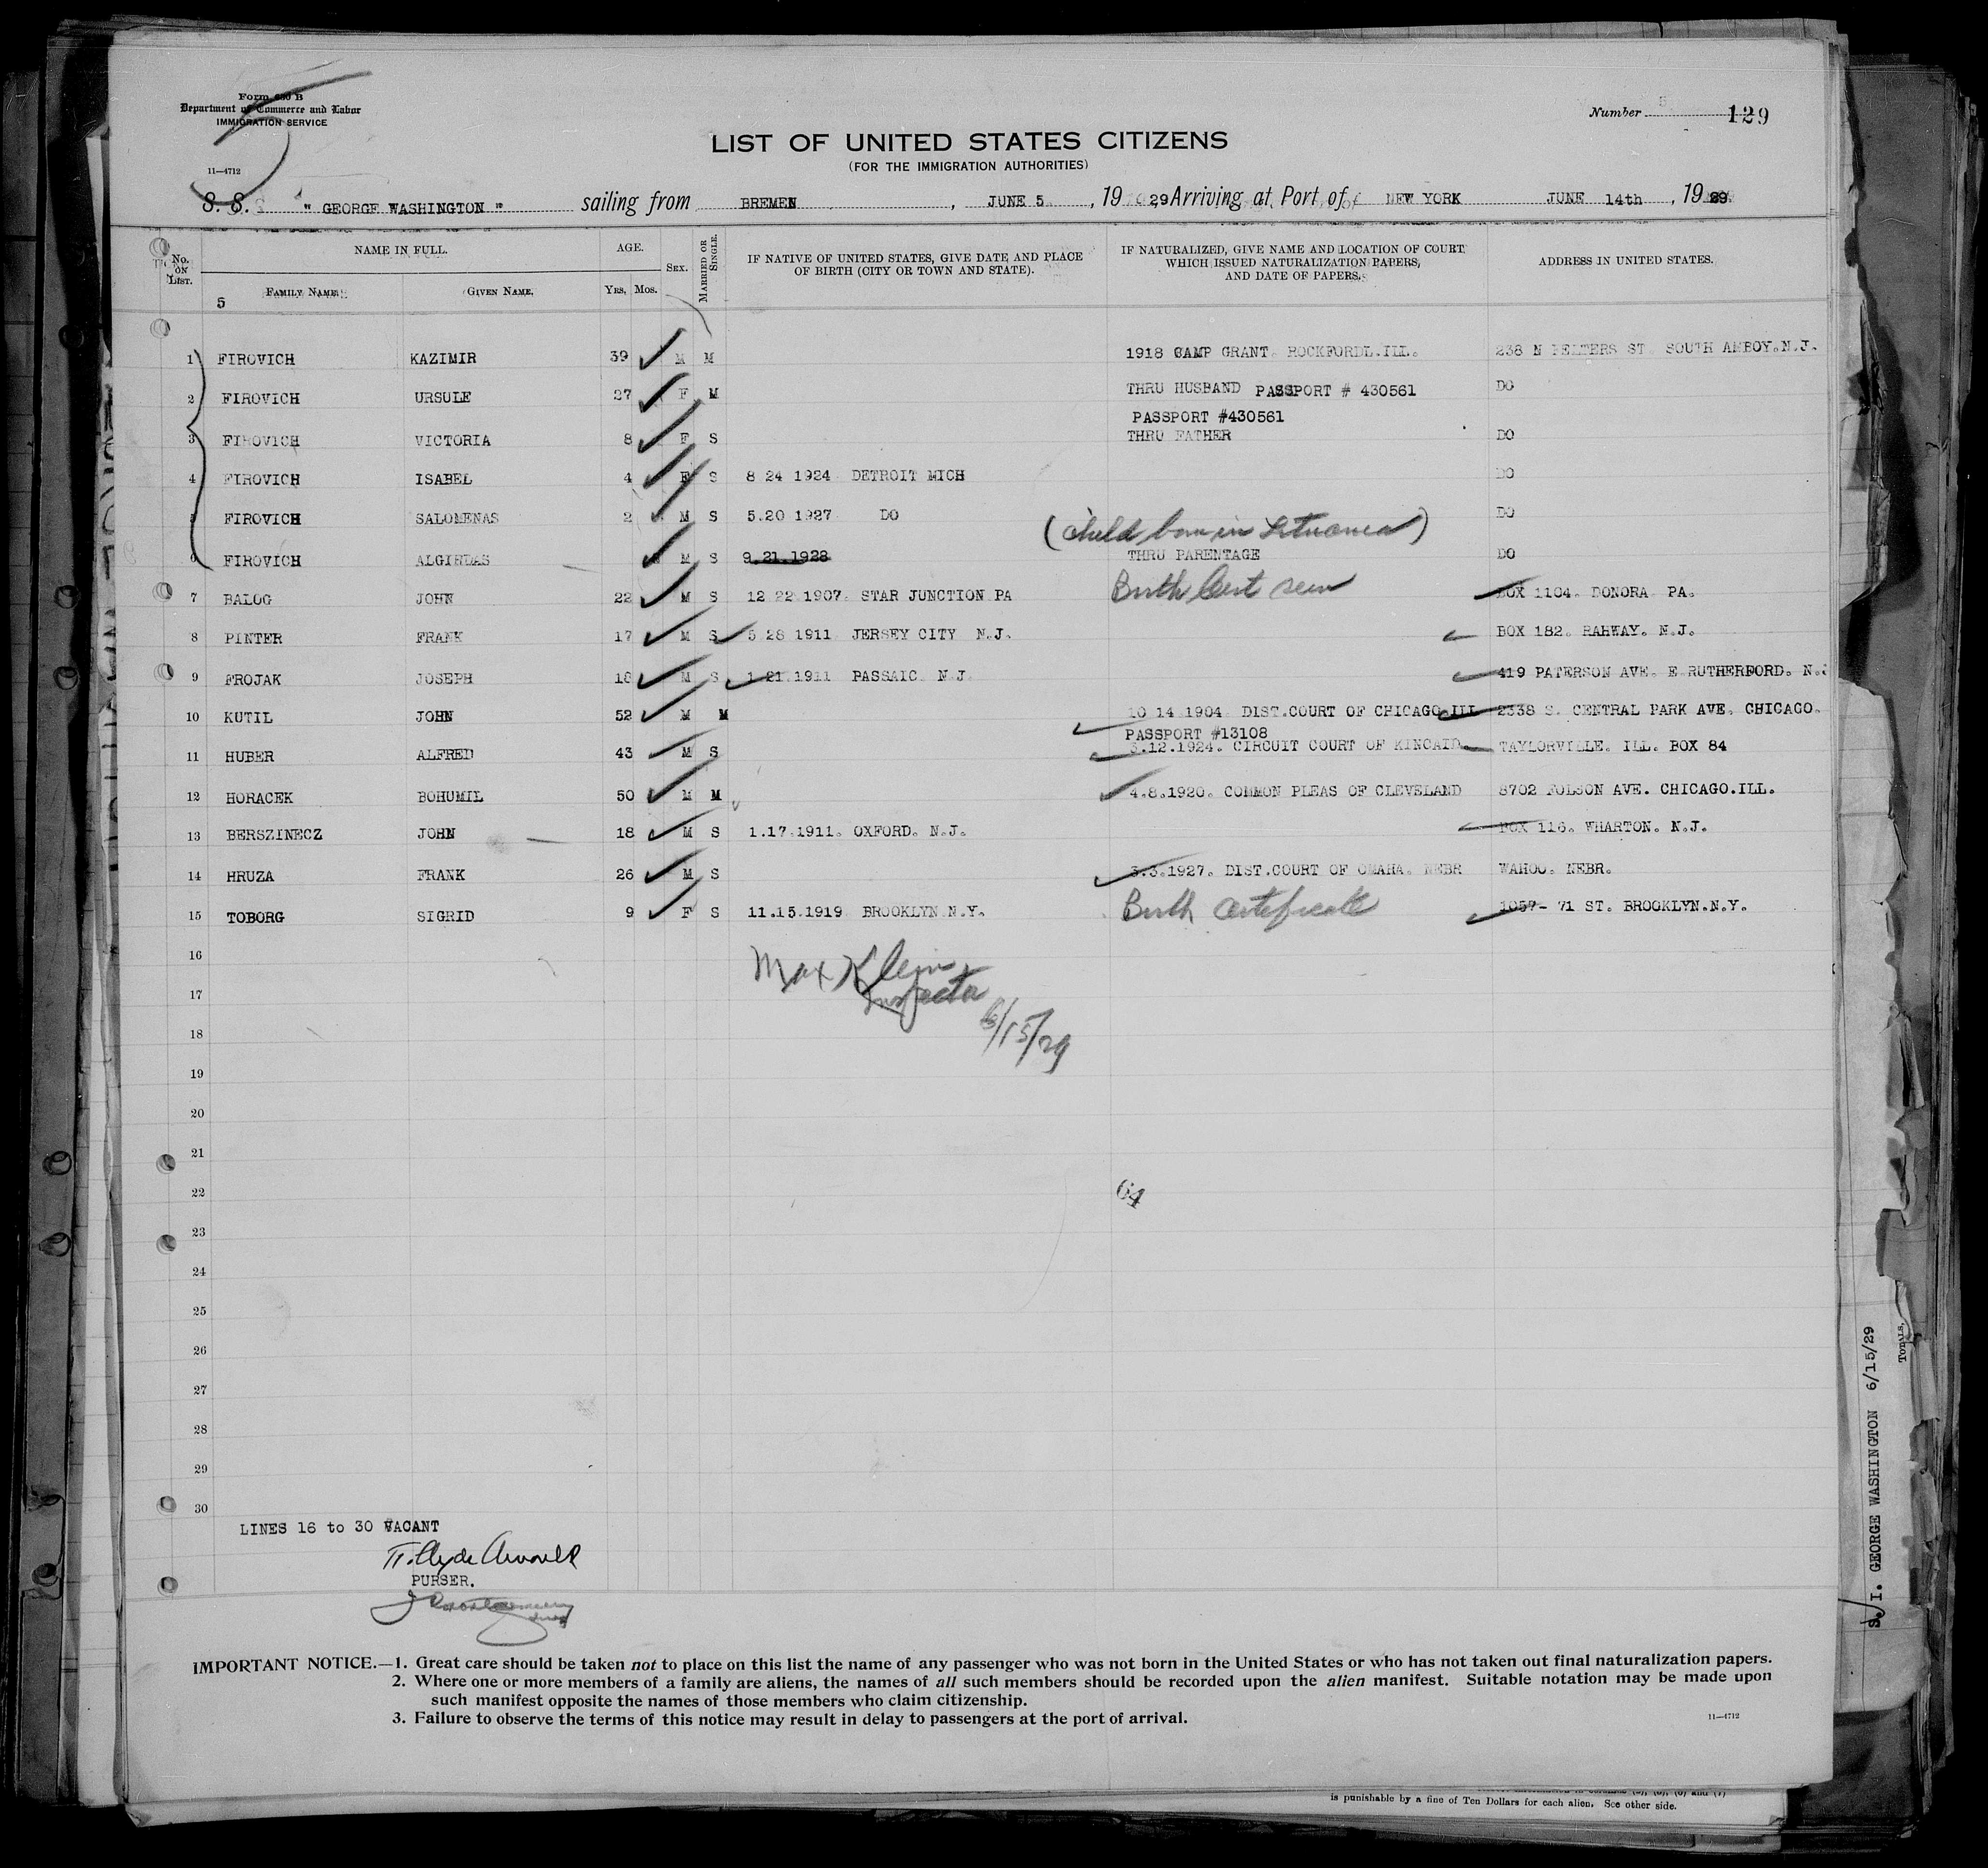 Form 630 B
Department of Commerce and Labor
IMMIGRATION SERVICE
11—4712
5
Number 5 129
LIST OF UNITED STATES CITIZENS
(FOR THE IMMIGRATION AUTHORITIES)
S. S. " GEORGE WASHINGTON " sailing from BREMEN , JUNE 5 , 1929 Arriving at Port of NEW YORK JUNE 14th , 1929
No. ON LIST. NAME IN FULL. AGE. SEX. MARRIED OR SINGLE. IF NATIVE OF UNITED STATES, GIVE DATE AND PLACE OF BIRTH (CITY OR TOWN AND STATE). IF NATURALIZED, GIVE NAME AND LOCATION OF COURT WHICH ISSUED NATURALIZATION PAPERS, AND DATE OF PAPERS. ADDRESS IN UNITED STATES.
5 FAMILY NAME. GIVEN NAME. YRS. MOS.
1 FIROVICH KAZIMIR 39 M M 1918 CAMP GRANT. ROCKFORDL.ILL. 238 N FELTERS ST. SOUTH AMBOY.N.J.
2 FIROVICH URSULE 27 F M THRU HUSBAND PASSPORT # 430561 DO
PASSPORT #430561
3 FIROVICH VICTORIA 8 F S THRU FATHER DO
4 FIROVICH ISABEL 4 F S 8 24 1924 DETROIT MICH DO
5 FIROVICH SALOMENAS 2 M S 5.20 1927 DO DO
(child born in Lituania)
6 FIROVICH ALGIRDAS M S 9.21.1928 THRU PARENTAGE DO
7 BALOG JOHN 22 M S 12 22 1907. STAR JUNCTION PA Birth Cert seen BOX 1104. DONORA PA.
8 PINTER FRANK 17 M S 5 28 1911 JERSEY CITY N.J. BOX 182. RAHWAY. N.J.
9 FROJAK JOSEPH 18 M S 1 21 1911 PASSAIC N J. 419 PATERSON AVE. E RUTHERFORD. N.J
10 KUTIL JOHN 52 M M 10 14 1904 DIST.COURT OF CHICAGO ILL 2338 S. CENTRAL PARK AVE. CHICAGO.
PASSPORT #13108
11 HUBER ALFRED 43 M S 3.12.1924. CIRCUIT COURT OF KINCAID TAYLORVILLE. ILL. BOX 84
12 HORACEK BOHUMIL 50 M M 4.8.1920. COMMON PLEAS OF CLEVELAND 8702 FOLSON AVE. CHICAGO.ILL.
13 BERSZINECZ JOHN 18 M S 1.17.1911. OXFORD. N.J. BOX 116. WHARTON. N.J.
14 HRUZA FRANK 26 M S 3.3.1927. DIST.COURT OF OMAHA. NEBR WAHOO. NEBR.
15 TOBORG SIGRID 9 F S 11.15.1919 BROOKLYN.N.Y. Birth Certeficate 1057- 71 ST. BROOKLYN.N.Y.
16
Max Klein
17
Inspector
18
6/15/29
19
20
21
22
64
23
24
25
26
27
28
29
30
LINES 16 to 30 VACANT
PURSER.
IMPORTANT NOTICE.—1. Great care should be taken not to place on this list the name of any passenger who was not born in the United States or who has not taken out final naturalization papers.
2. Where one or more members of a family are aliens, the names of all such members should be recorded upon the alien manifest. Suitable notation may be made upon
such manifest opposite the names of those members who claim citizenship.
3. Failure to observe the terms of this notice may result in delay to passengers at the port of arrival.
11—4712
is punishable by a fine of Ten Dollars for each alien. See other side.
S. I. GEORGE WASHINGTON 6/15/29
TOTALS,